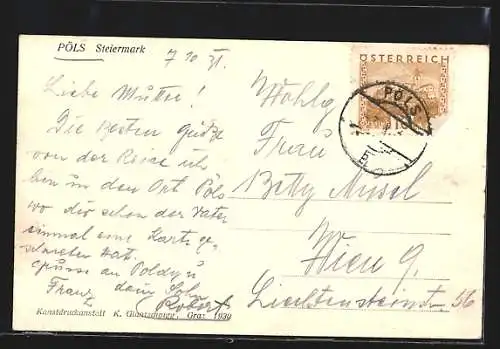 PÖLS Steiermark
7 10 31.
Liebe Mutter!
Die besten Grüße
von der Reise. Ich
bin in dem Ort Pöls
wo dir schon der Vater
einmal eine Karte ge-
schrieben hat.
Grüsse an Poldy u
Franz dein Sohn
Robert
Kunstdruckanstalt K. Graz 1930
Wohlg
Frau
Betty Musel
Wien 9.
Liechtensteinstr 56
ÖSTERREICH
PÖLS